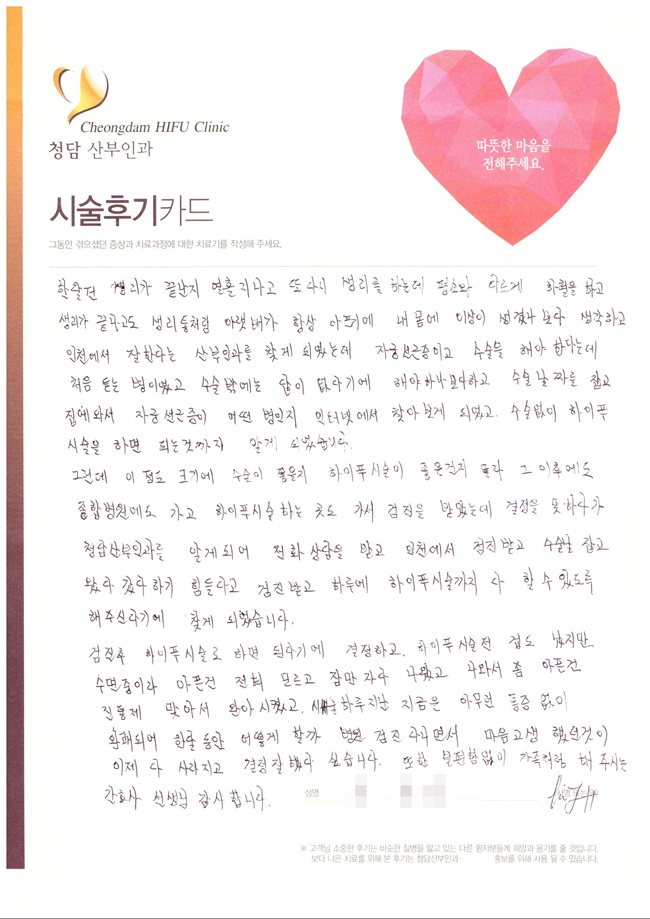 Cheongdam HIFU Clinic
청담 산부인과
따뜻한 마음을
전해주세요.
시술후기카드
그동안 겪으셨던 증상과 치료과정에 대한 치료기를 작성해 주세요.
한달전 생리가 끝난지 열흘지나고 또다시 생리를 하는데 평소와 다르게 하혈을 하고
생리가 끝나고도 생리통처럼 아랫배가 항상 아프기에 내 몸에 이상이 생겼나 보다 생각하고
인천에서 잘한다는 산부인과를 찾게 되었는데 자궁선근증이고 수술을 해야 한다는데
처음 듣는 병이었고 수술밖에는 답이 없다기에 해야하나보다하고 수술날짜를 잡고
집에와서 자궁선근증이 어떤 병인지 인터넷에서 찾아보게 되었고. 수술없이 하이푸
시술을 하면 되는것까지 알게 되었습니다.
그런데 이 정도 크기에 수술이 좋은지 하이푸시술이 좋은건지 몰라 그 이후에도
종합병원에도 가고 하이푸시술 하는 곳도 가서 검진을 받았는데 결정을 못하다가
청담산부인과를 알게되어 전화상담을 받고 인천에서 검진받고 수술날 잡고
왔다 갔다하기 힘들다고 검진받고 하루에 하이푸시술까지 다 할 수 있도록
해주신다기에 찾게 되었습니다.
검진후 하이푸시술로 하면 된다기에 결정하고. 하이푸시술전 겁도 났지만
수면중이라 아픈건 전혀 모르고 잠만 자다 나왔고 나와서 좀 아픈건
진통제 맞아서 완아시켰고. 하루지난 지금은 아무런 통증 없이
완쾌되어 한달동안 어떻게 할까 병원 검진 다니면서 마음고생 했던것이
이제 다 사라지고 결정잘했다 싶습니다. 또한 불편함없이 가족처럼 해 주시는
간호사 선생님 감사합니다.
성명
※ 고객님 소중한 후기는 비슷한 질병을 앓고 있는 다른 환자분들께 희망과 용기를 줄 것입니다.
보다 나은 치료를 위해 본 후기는 청담산부인과· 홍보를 위해 사용 될 수 있습니다.